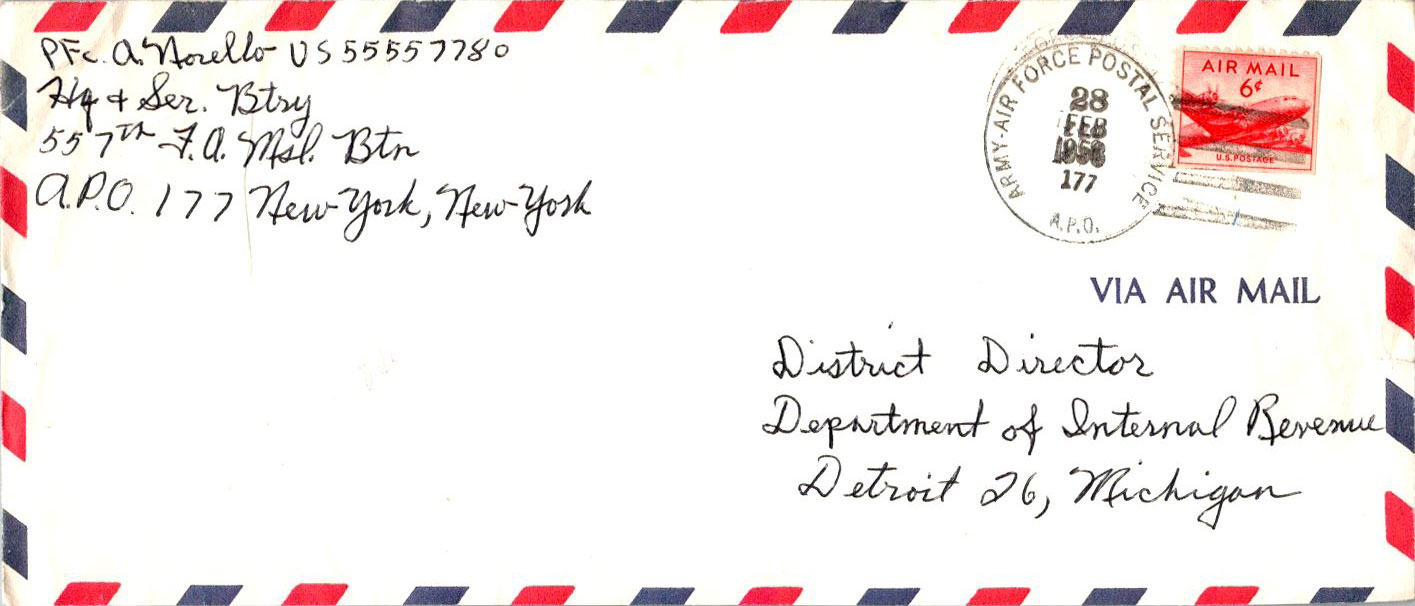 PFc. A. Norello US 55557780
Hq + Ser. Btry
557th F.A. Msl. Btn
A.P.O. 177 New York, New York
ARMY-AIR FORCE POSTAL SERVICE
28
FEB
1958
177
A.P.O.
AIR MAIL
6¢
U.S. POSTAGE
VIA AIR MAIL
District Director
Department of Internal Revenue
Detroit 26, Michigan